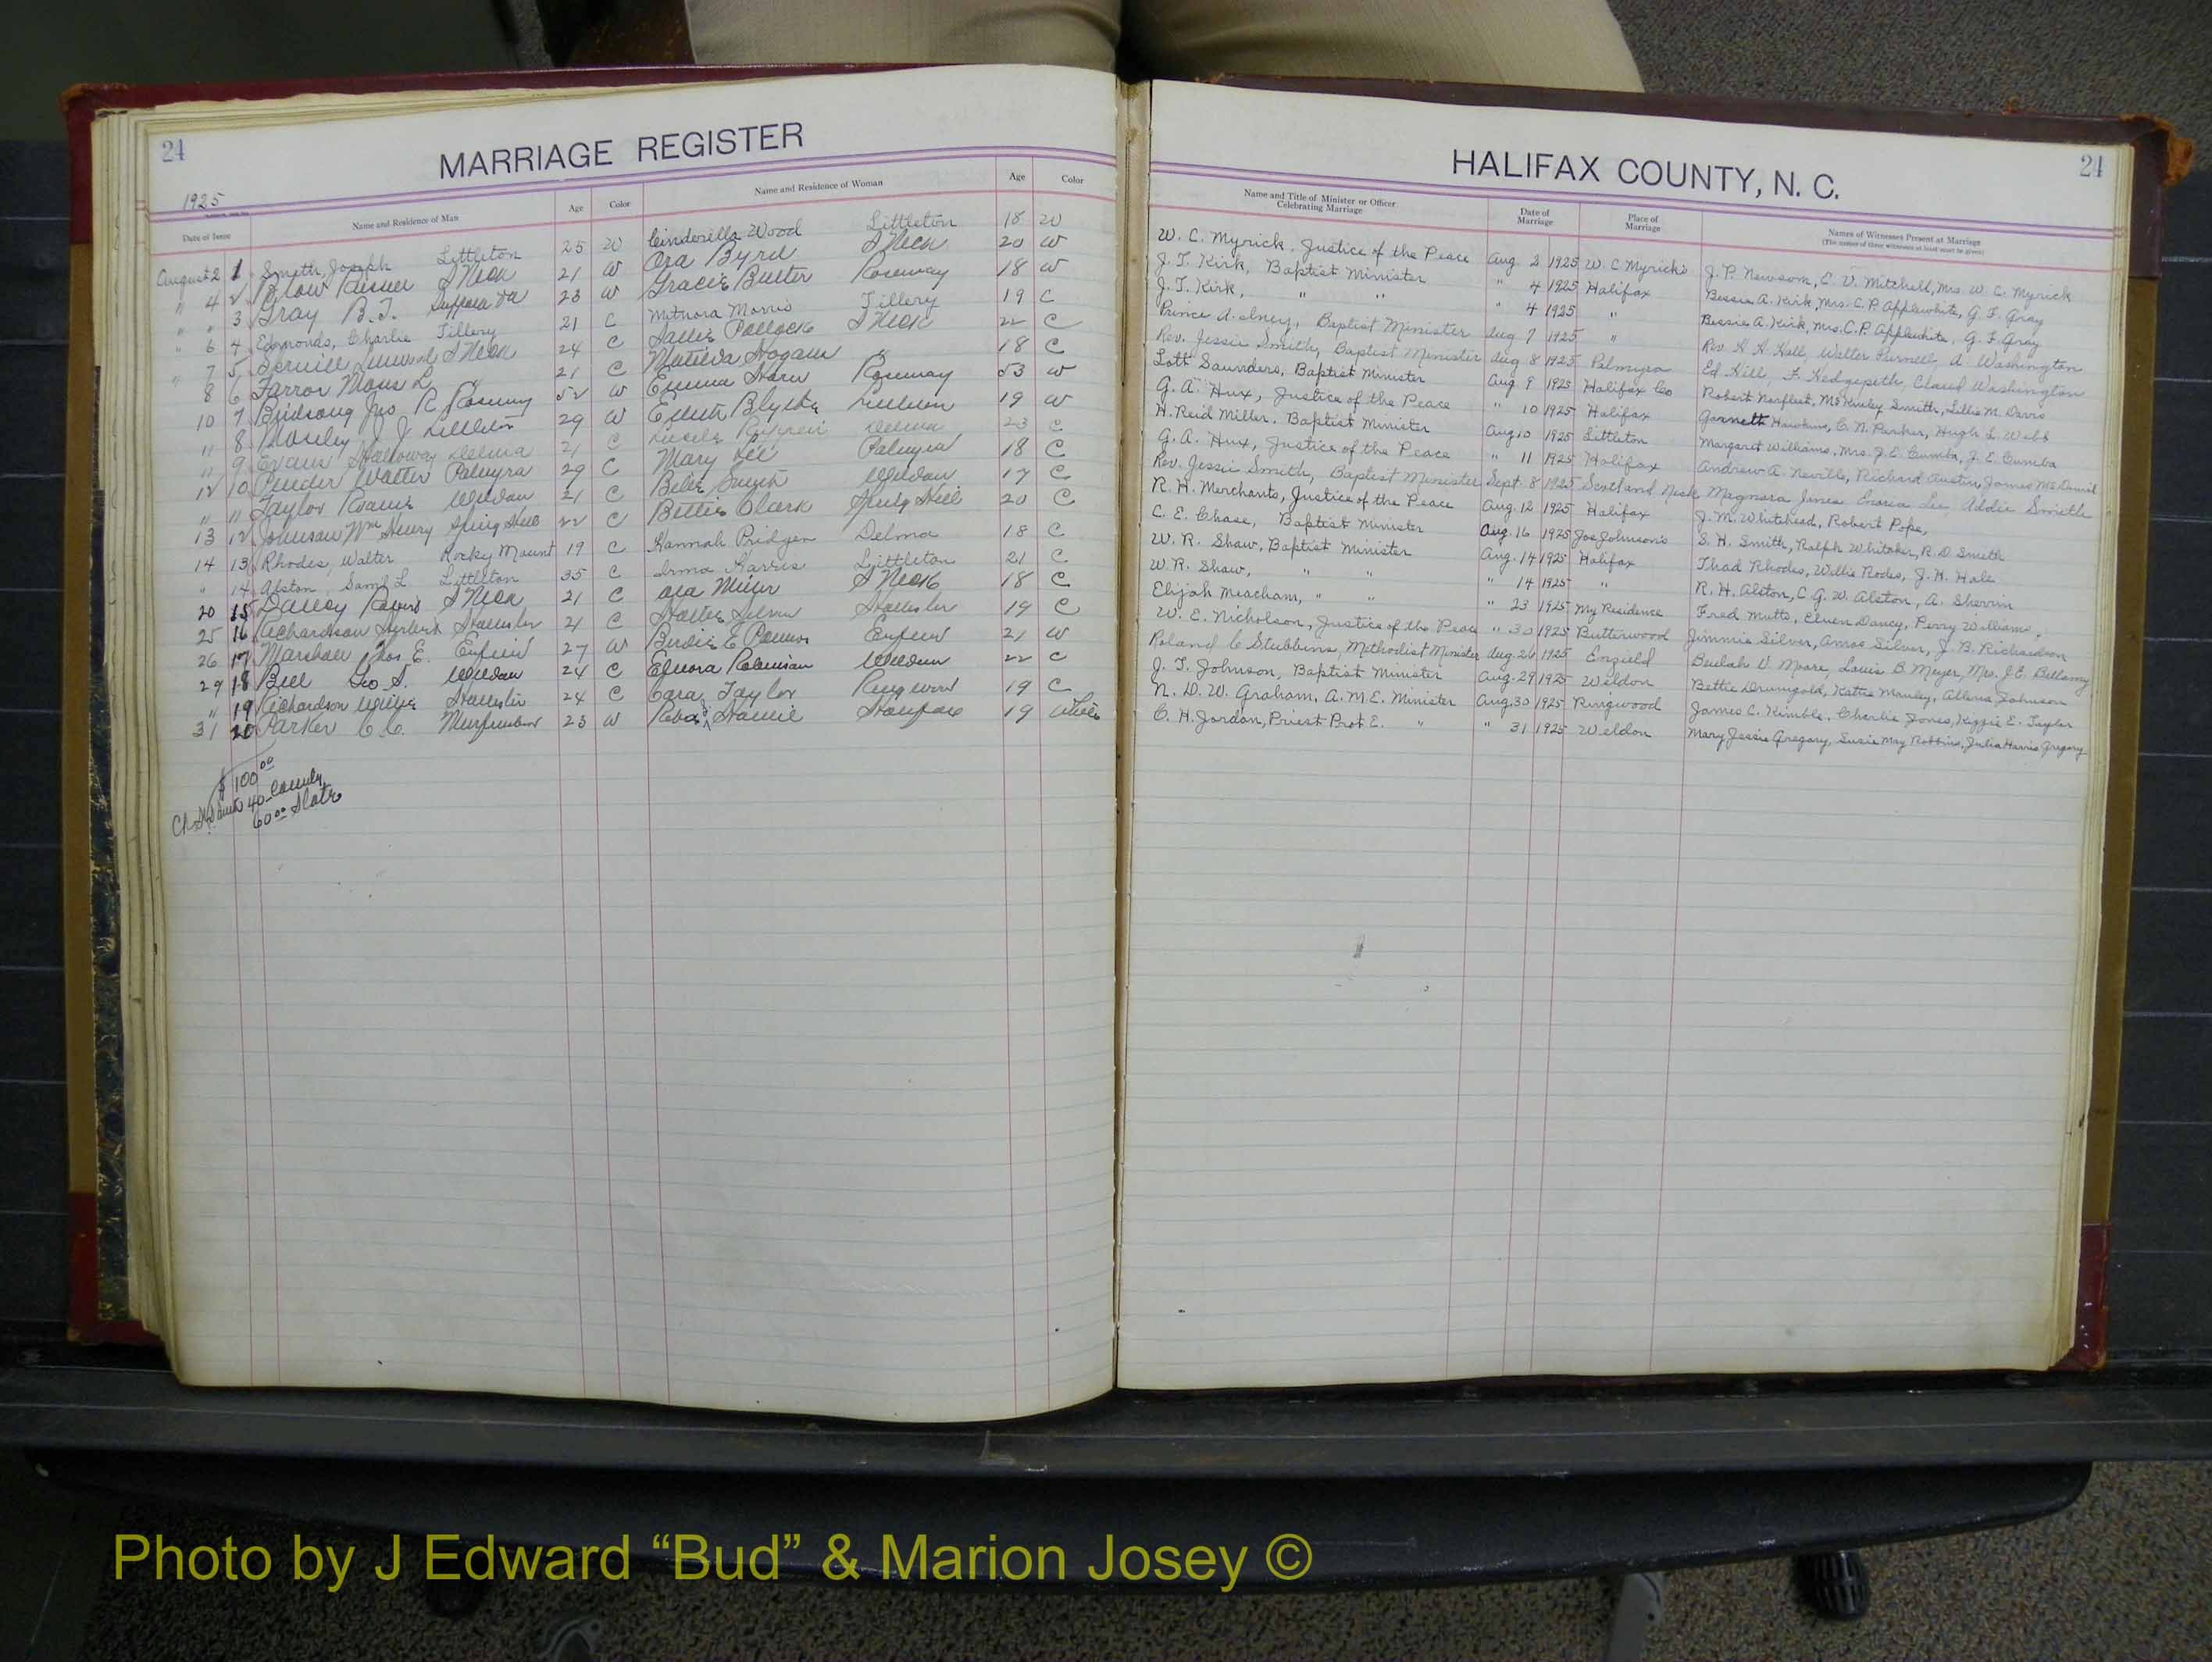 24
MARRIAGE REGISTER
1925
Date of Issue Name and Residence of Man Age Color Name and Residence of Woman Age Color
August 2 1 Smith, Joseph Littleton 25 W Cinderilla Wood Littleton 18 W
" 4 2 Blow S Neck 21 W Ora Byrd S Neck 20 W
" " 3 Gray B. T. Suffolk Va 23 W Gracie Butter Rosemary 18 W
" 6 4 Edmonds, Charlie Tillery 21 C Morris Tillery 19 C
" 7 5 S Neck 24 C Sallie S Neck 22 C
" 8 6 Farror L " 21 C Matilda Hogans " 18 C
10 7 Birdsong Jno R Rosemary 52 W Emma Rosemary 53 W
11 8 Mosley J. J. Littleton 29 W Blythe Littleton 19 W
" 9 Evans Holloway Delma 21 C Delma 23 C
12 10 Pender Walter Palmyra 29 C Mary Lee Palmyra 18 C
" 11 Taylor Weldon 21 C Smith Weldon 17 C
13 12 Johnson Wm Henry Spring Hill 22 C Bettie Clark Spring Hill 20 C
14 13 Rhodes, Walter Rocky Mount 19 C Hannah Pridgen Delma 18 C
" 14 Alston, Saml L Littleton 35 C Irma Harris Littleton 21 C
20 15 Dancy S Neck 21 C Ora S Neck 18 C
25 16 Richardson Herbert Hollister 21 C Hollister 19 C
26 17 Marshall Thos. E. Enfield 27 W Birdie E Enfield 21 W
29 18 Bell Geo S. Weldon 24 C Elnora Robinson Weldon 22 C
" 19 Richardson Willie Hollister 24 C Cora Taylor Ringwood 19 C
31 20 Parker C. C. Murfreesboro 23 W Halifax 19 White
$100 00
40 County
60 00 State
HALIFAX COUNTY, N. C.
24
Name and Title of Minister or Officer Celebrating Marriage Date of Marriage Place of Marriage Names of Witnesses Present at Marriage
(The names of three witnesses at least must be given)
W. C. Myrick, Justice of the Peace Aug. 2 1925 W. C. Myrick's J. P. Newsom, E. V. Mitchell, Mrs. W. C. Myrick
J. T. Kirk, Baptist Minister " 4 1925 Halifax Bessie A. Kirk, Mrs. C. P. Applewhite, G. F. Gray
J. T. Kirk, " " " 4 1925 " Bessie A. Kirk, Mrs. C. P. Applewhite, G. F. Gray
Prince A. Baptist Minister Aug 7 1925 " Rev. H. H. Hall, Walter Purnell, A. Washington
Rev. Jessie Smith, Baptist Minister Aug 8 1925 Palmyra Ed Hill, F. Hedgepeth, Claud Washington
Lott Saunders, Baptist Minister Aug. 9 1925 Halifax Co Robert Norfleet, McKinley Smith, Lillie M. Davis
G. A. Hux, Justice of the Peace " 10 1925 Halifax Garnett Hawkins, C. N. Parker, Hugh L. Webb
H. Reid Miller, Baptist Minister Aug 10 1925 Littleton Margaret Williams, Mrs. J. E. Cumba, J. E. Cumba
G. A. Hux, Justice of the Peace " 11 1925 Halifax Andrew A. Neville, Richard Austin, James McDaniel
Rev. Jessie Smith, Baptist Minister Sept. 8 1925 Scotland Neck Magnora Jones Lee, Addie Smith
R. H. Merchants, Justice of the Peace Aug. 12 1925 Halifax J. M. Whitehead, Robert Pope,
C. E. Chase, Baptist Minister Aug. 16 1925 Joe Johnson's S. H. Smith, Ralph Whitaker, R. D. Smith
W. R. Shaw, Baptist Minister Aug. 14 1925 Halifax Thad Rhodes, Willie Rodes, J. H. Hale
W. R. Shaw, " " " 14 1925 " R. H. Alston, C. G. W. Alston, A. Sherrin
Elijah Meacham, " " " 23 1925 My Residence Fred Mutts, Elven Dancy, Perry Williams,
W. E. Nicholson, Justice of the Peace " 30 1925 Butterwood Jimmie Silver, Amos Silver, J. B. Richardson
Roland C Stubbins, Methodist Minister Aug. 26 1925 Enfield Beulah V. Moore, Louis B. Meyer, Mrs. J. E. Bellamy
J. T. Johnson, Baptist Minister Aug. 29 1925 Weldon Bettie Drumgold, Kattie Manley, Allena Johnson
N. D. W. Graham, A. M. E. Minister Aug. 30 1925 Ringwood James C. Kimble, Charlie Jones, Kizzie E. Taylor
C. H. Jordan, Priest Prot E. " " 31 1925 Weldon Mary Jessie Gregory, Susie May Robbins, Julia Harris Gregory
Photo by J Edward “Bud” & Marion Josey ©